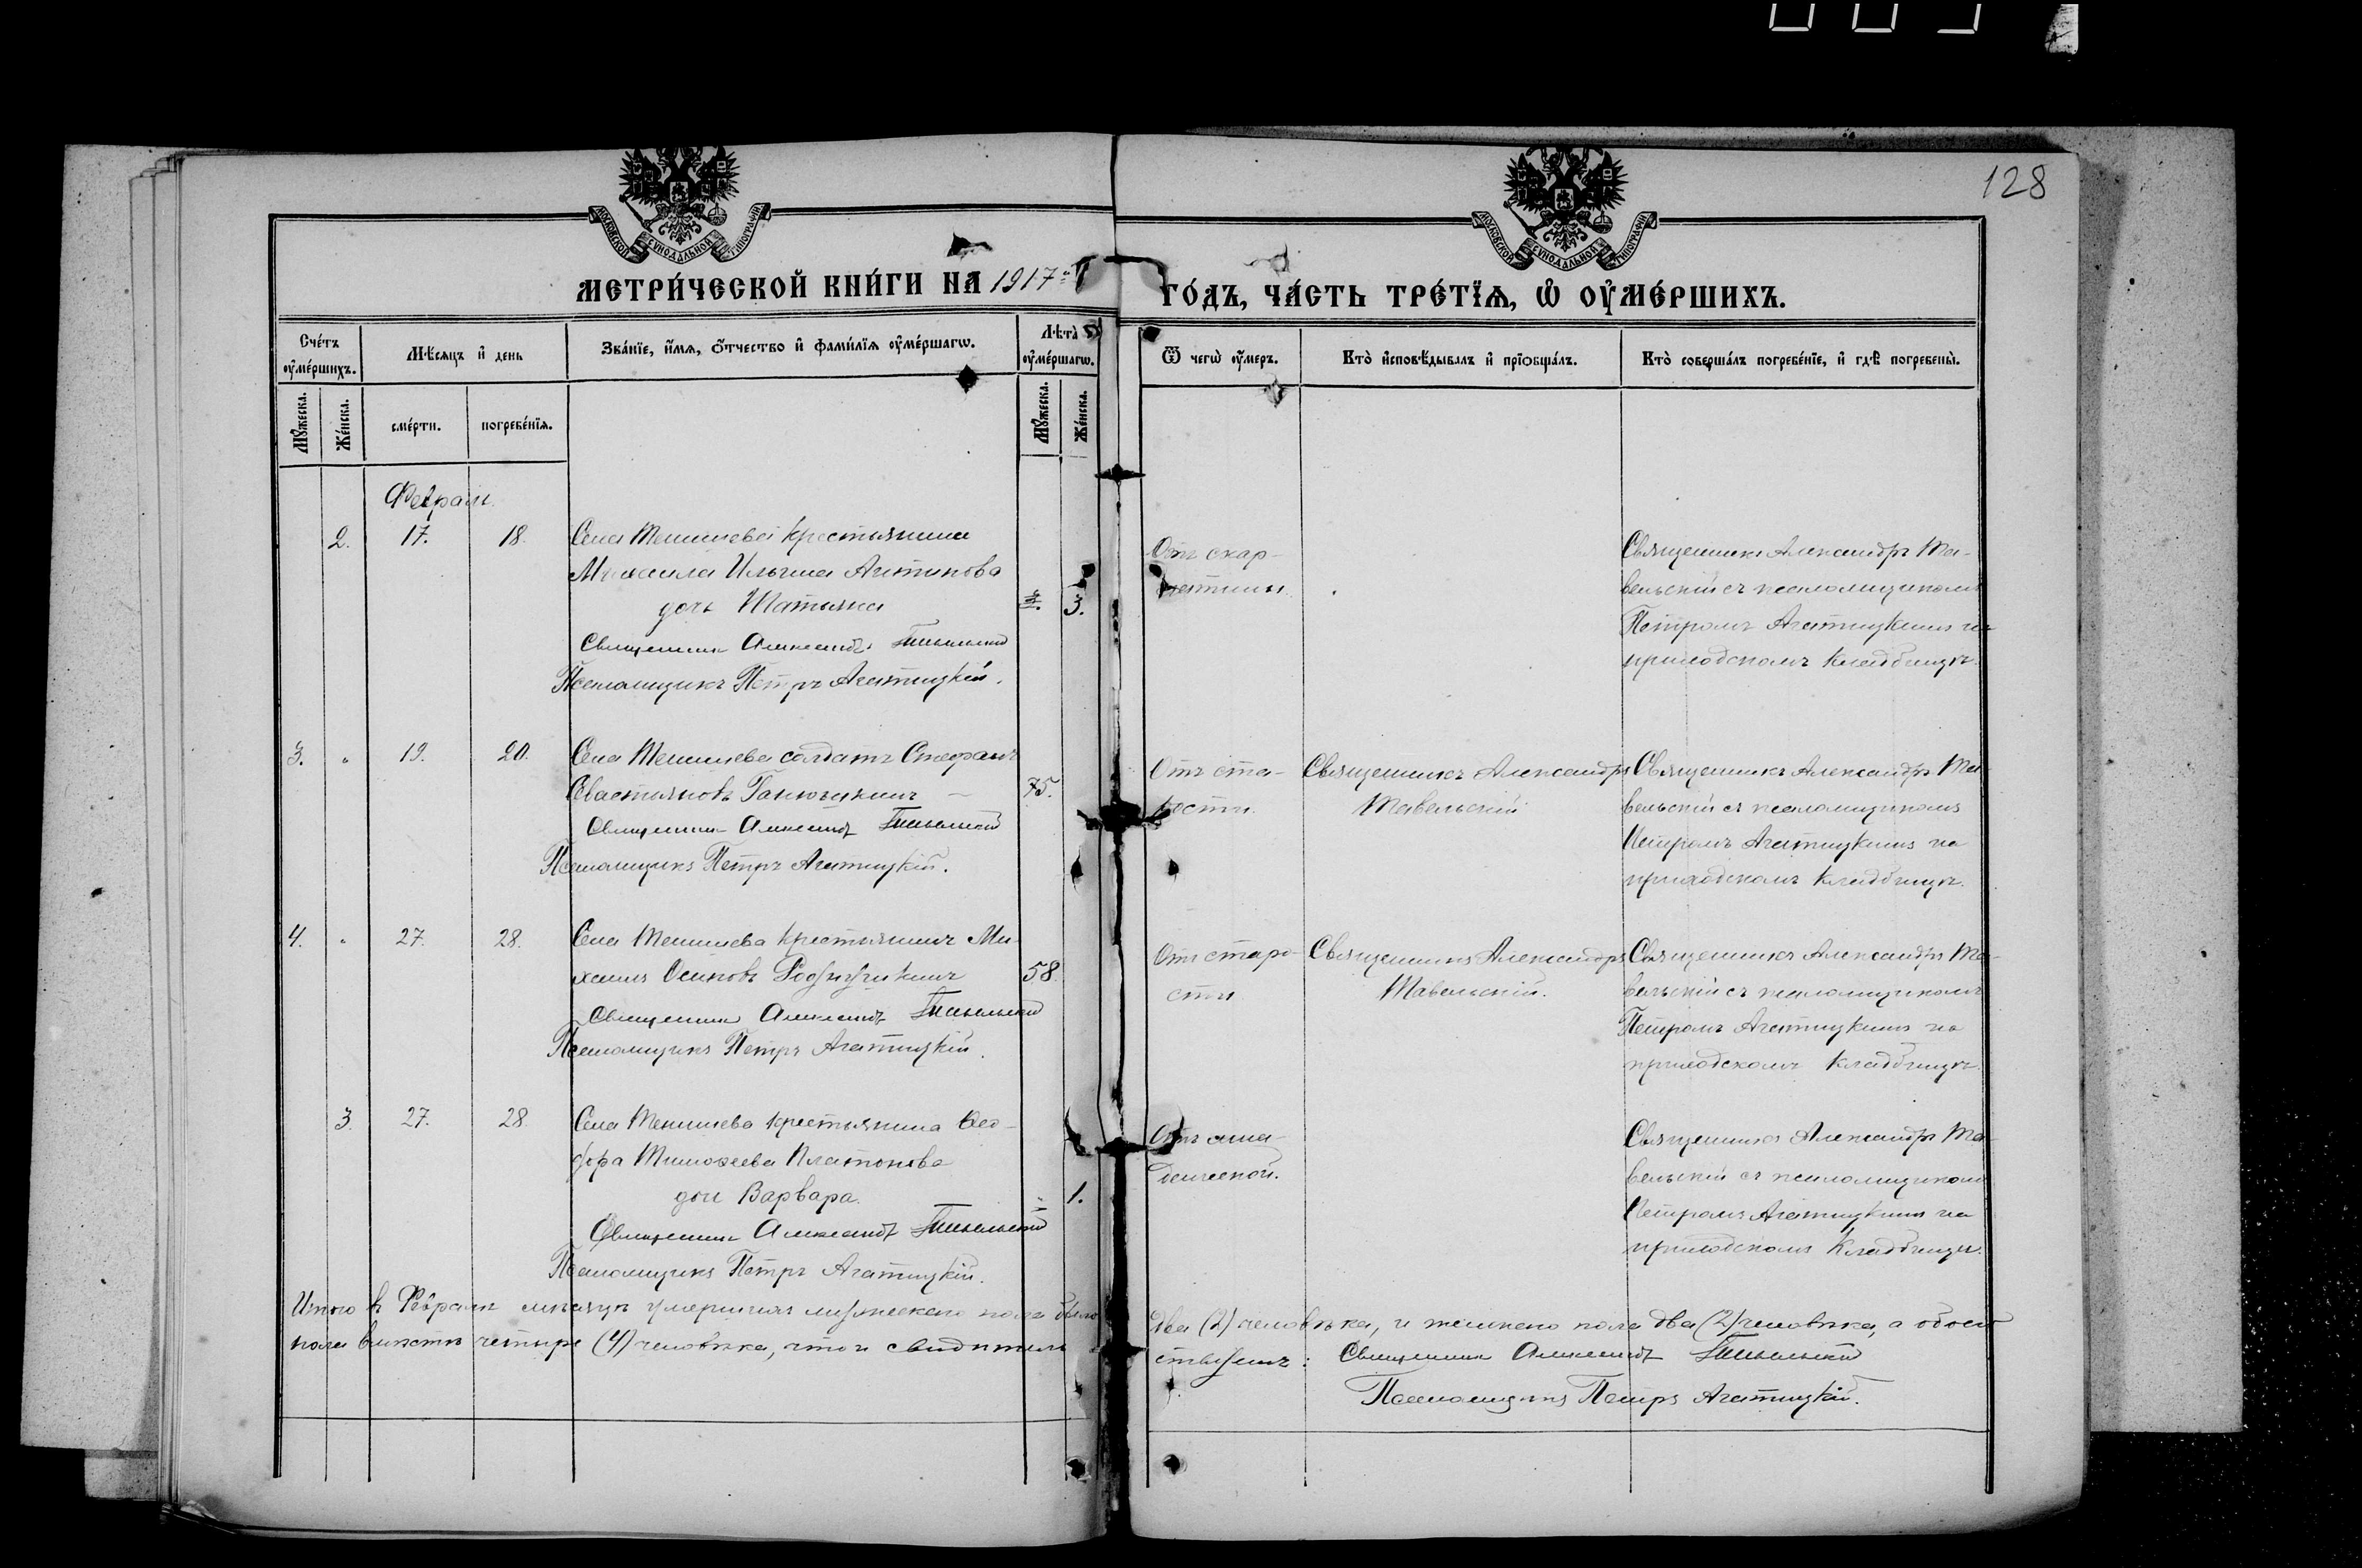 128
МОСКОВСКОЙ СѴНОДАЛЬНОЙ ТИПОГРАФІИ
МОСКОВСКОЙ СѴНОДАЛЬНОЙ ТИПОГРАФІИ
МЕТРИ́ЧЕСКОЙ КНИ́ГИ НА 1917 ГО́ДЪ, ЧА́СТЬ ТРЕ́ТІѦ, Ѡ҆ ОУ҆МЕ́РШИХЪ.
Сче́тъ оу҆ме́ршихъ.
Мꙋ́жеска.
Же́нска.
Мѣ́сѧцъ и҆ день
сме́рти.
погребе́нїѧ.
Зва́нїе, и҆́мѧ, ѻ҆́тчество и҆ фами́лїѧ оу҆ме́ршагѡ.
Лѣ́та оу҆ме́ршагѡ.
Мꙋ́жеска.
Же́нска.
Ѿ чегѡ̀ оу҆́меръ.
Кто̀ и҆сповѣ́дывалъ и҆ прїѡбща́лъ.
Кто̀ соверша́лъ погребе́нїе, и҆ гдѣ̀ погребены̀.
Февраль.
2. 17. 18. Села Темишева крестьянина
Ильина Антипова
дочь Татьяна 3.
Священникъ Александръ Тавельскій
Псаломщикъ Петръ Агатицкій.
Отъ скар-
латины.
Священникъ Александръ Та-
вельскій съ псаломщикомъ
Петромъ Агатицкимъ на
приходскомъ кладбищѣ.
3. " 19. 20. Села Темишева солдатъ Стефанъ
Севастьяновъ 75.
Священникъ Александръ Тавельскій
Псаломщикъ Петръ Агатицкій.
Отъ ста-
рости.
Священникъ Александръ
Тавельскій
Священникъ Александръ Та-
вельскій съ псаломщикомъ
Петромъ Агатицкимъ на
приходскомъ кладбищѣ.
4. " 27. 28. Села Темишева крестьянинъ Ми-
хаилъ Осиповъ 58.
Священникъ Александръ Тавельскій
Псаломщикъ Петръ Агатицкій.
Отъ старо-
сти
Священникъ Александръ
Тавельскій.
Священникъ Александръ Та-
вельскій съ псаломщикомъ
Петромъ Агатицкимъ на
приходскомъ кладбищѣ.
3. 27. 28. Села Темишева крестьянина Ѳео-
дора Тимоѳеева Платонова
дочь Варвара. 1.
Священникъ Александръ Тавельскій
Псаломщикъ Петръ Агатицкій.
Отъ мла-
денческой.
Священникъ Александръ Та-
вельскій съ псаломщикомъ
Петромъ Агатицкимъ на
приходскомъ кладбищѣ.
Итого въ Февралѣ мѣсяцѣ умершихъ мужескаго пола было два (2) человѣка, и женскаго пола два (2) человѣка, а обоего
пола вмѣстѣ четыре (4) человѣка, что и свидѣтельствуемъ: Священникъ Александръ Тавельскій
Псаломщикъ Петръ Агатицкій.